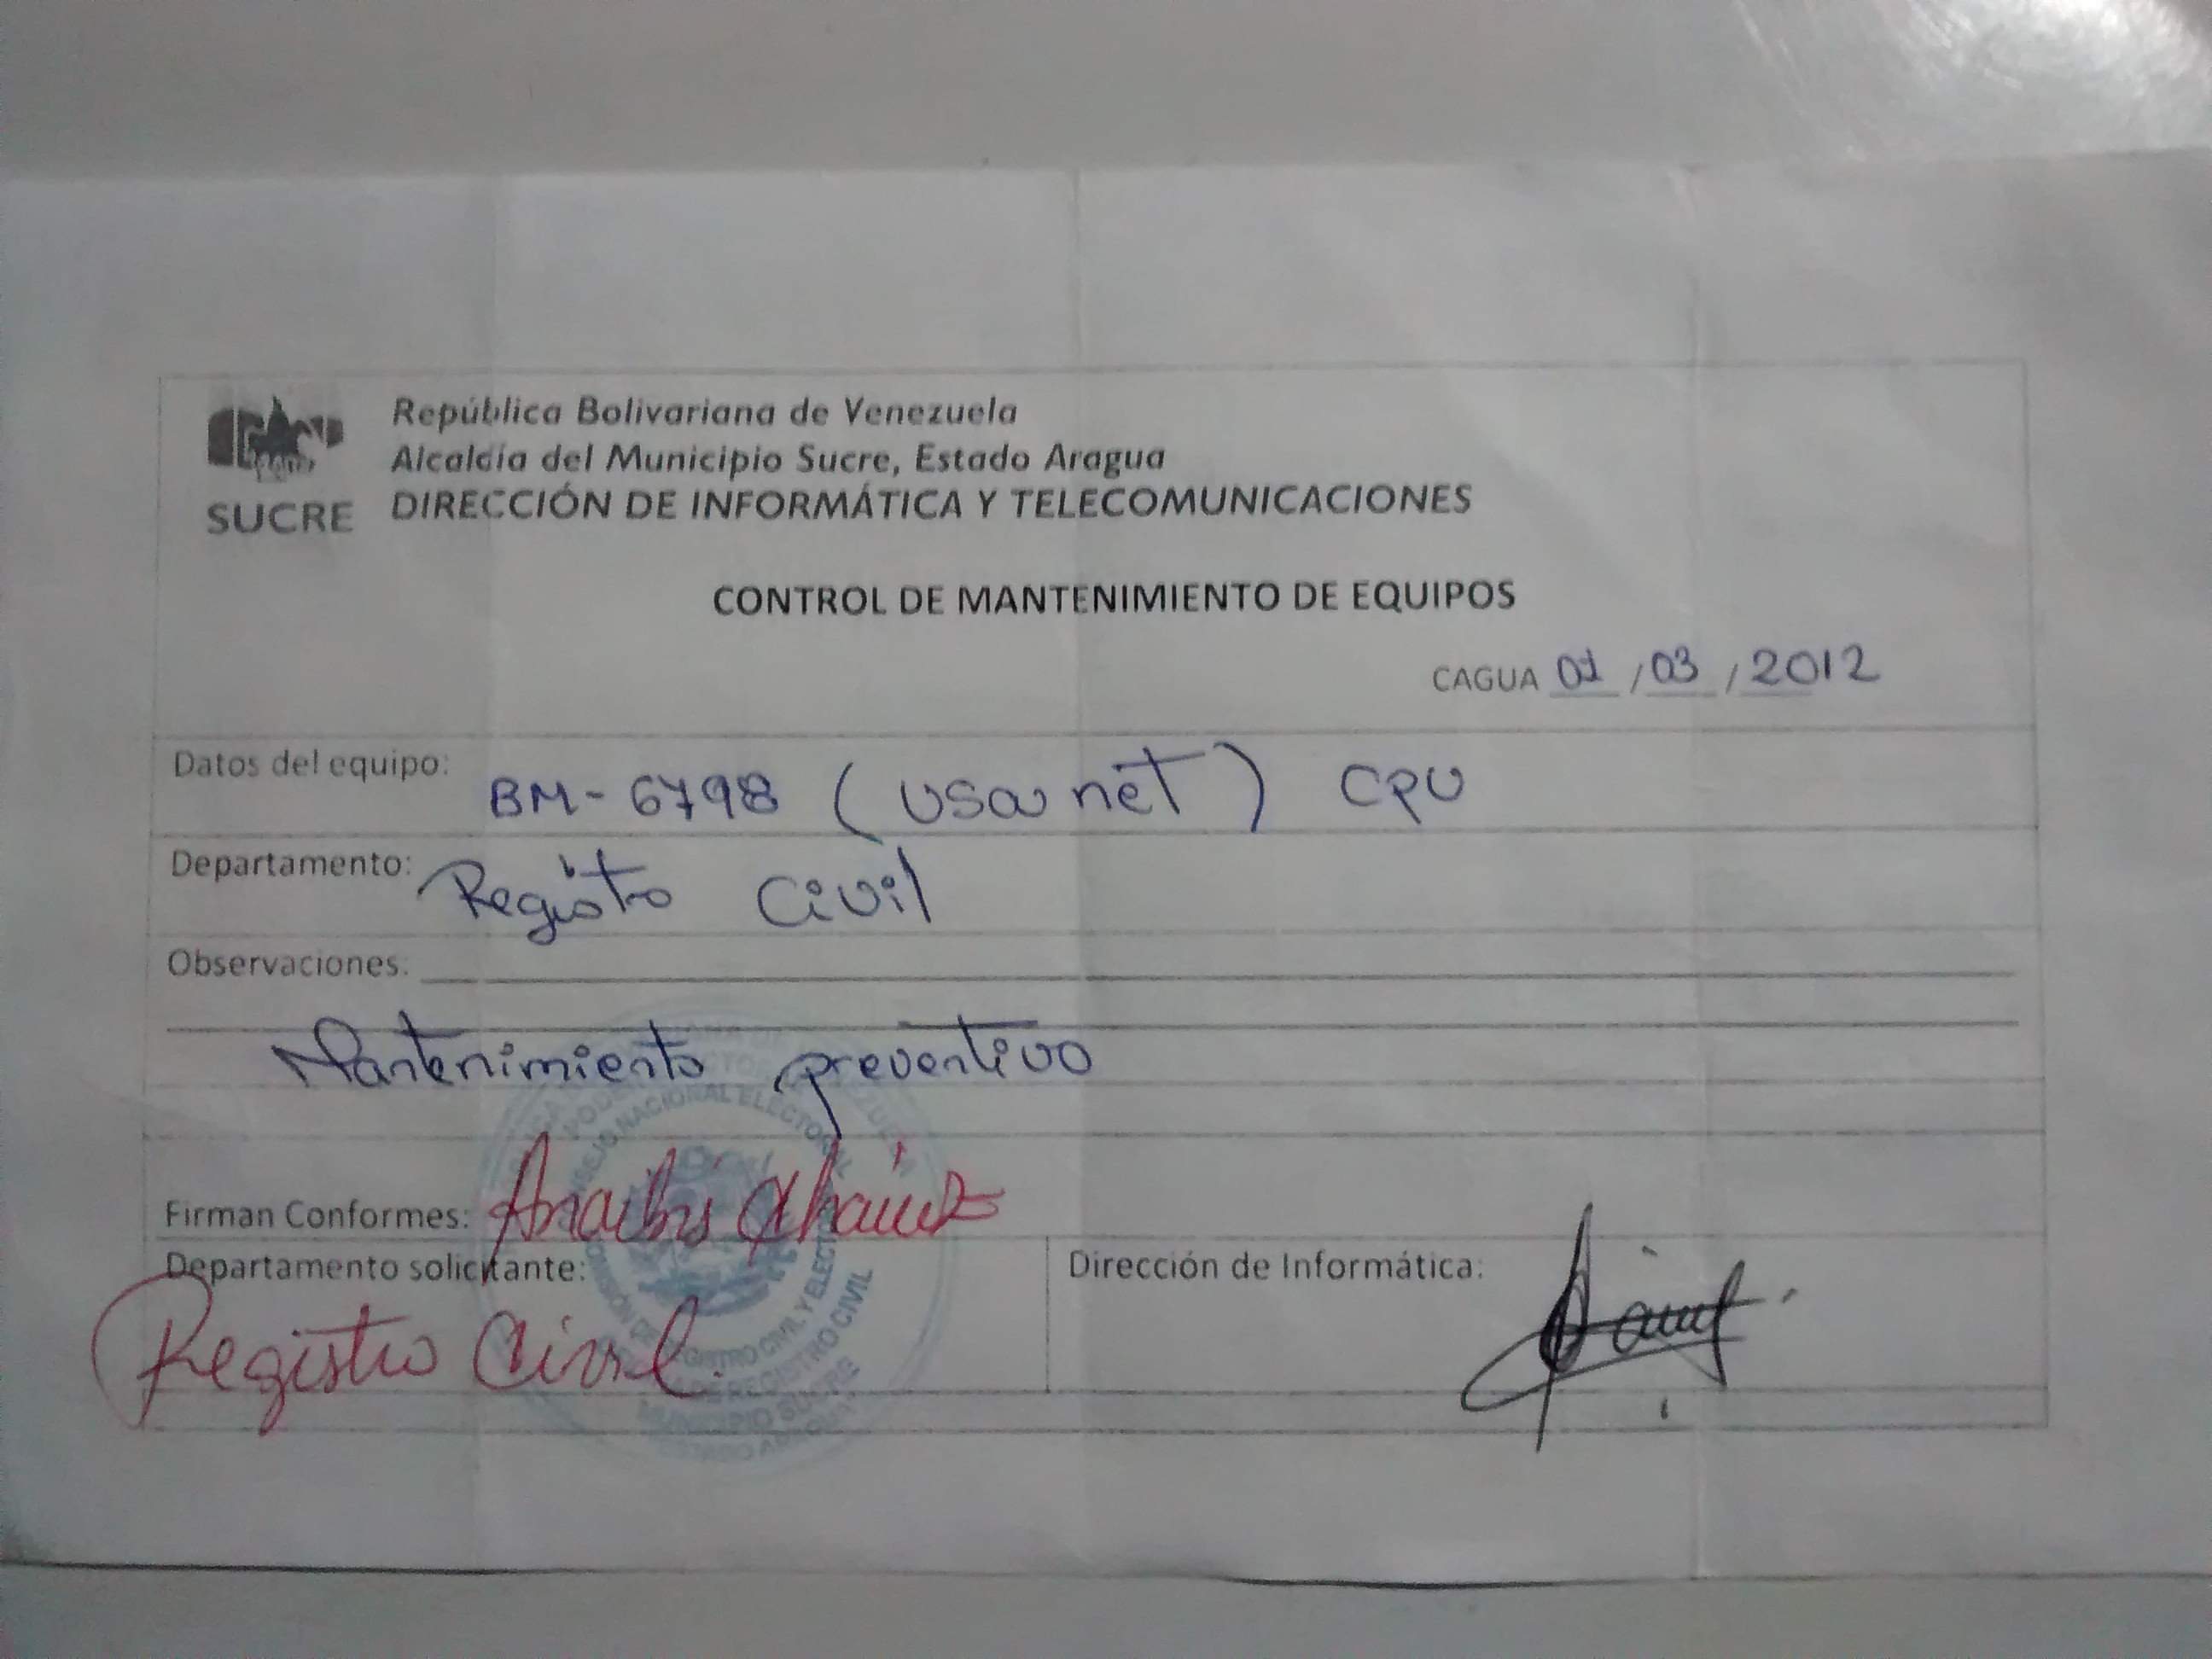 República Bolivariana de Venezuela
Alcaldía del Municipio Sucre, Estado Aragua
SUCRE DIRECCIÓN DE INFORMÁTICA Y TELECOMUNICACIONES
CONTROL DE MANTENIMIENTO DE EQUIPOS
CAGUA 01 / 03 / 2012
Datos del equipo: BM-6798 (usa net) CPU
Departamento: Registro Civil
Observaciones:
Mantenimiento preventivo
Firman Conformes:
Departamento solicitante: Dirección de Informática:
Registro Civil
CONSEJO NACIONAL ELECTORAL
REGISTRO CIVIL Y
REGISTRO CIVIL
MUNICIPIO SUCRE